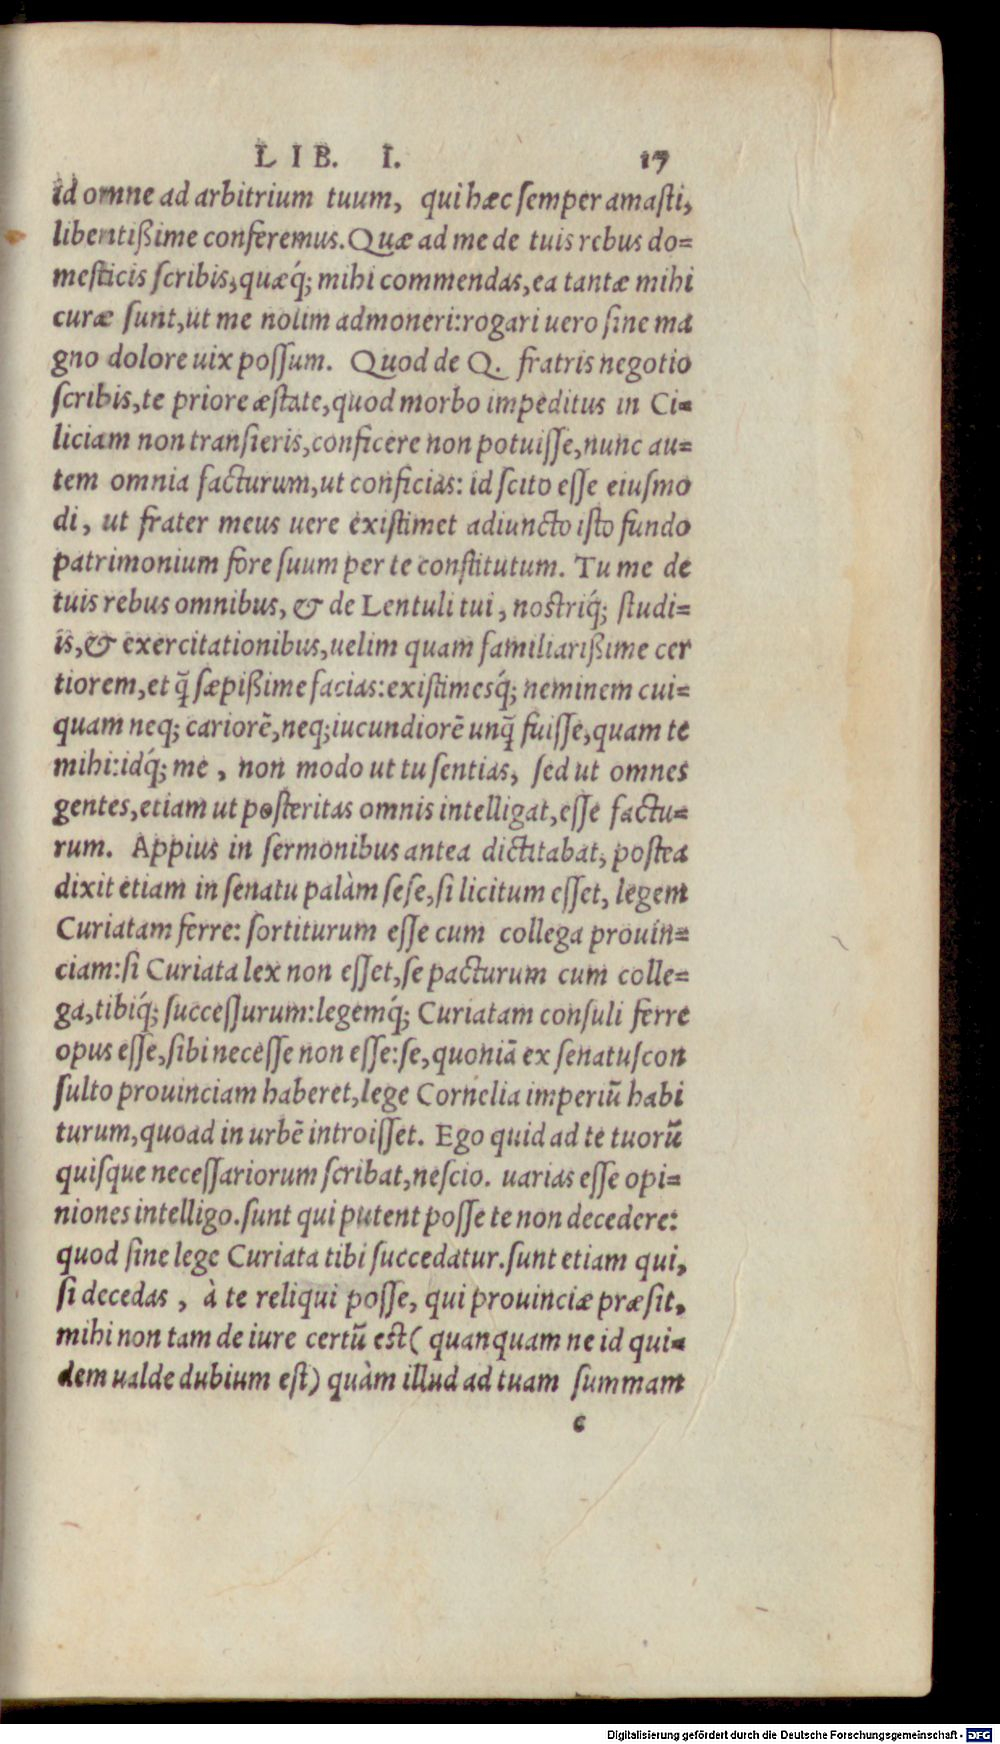 LIB. I. 17
id omne ad arbitrium tuum, qui hæc ſemper amaſti,
libentißime conferemus. Quæ ad me de tuis rebus do=
meſticis ſcribis, quæq́; mihi commendas, ea tantæ mihi
curæ ſunt, ut me nolim admoneri: rogari uero ſine ma
gno dolore uix poſſum. Quod de Q. fratris negotio
ſcribis, te priore æſtate, quod morbo impeditus in Ci=
liciam non tranſieris, conficere non potuiſſe, nunc au=
tem omnia facturum, ut conficias: id ſcito eſſe eiuſmo
di, ut frater meus uere exiſtimet adiuncto iſto fundo
patrimonium fore ſuum per te conſtitutum. Tu me de
tuis rebus omnibus, & de Lentuli tui, noſtriq́; ſtudi=
is, & exercitationibus, uelim quam familiarißime cer
tiorem, et q̃ ſæpißime facias: exiſtimesq́; neminem cui=
quam neq; cariorē, neq; iucundiorē unq̃ fuiſſe, quam te
mihi: idq́; me, non modo ut tu ſentias, ſed ut omnes
gentes, etiam ut poſteritas omnis intelligat, eſſe factu=
rum. Appius in ſermonibus antea dictitabat, poſtea
dixit etiam in ſenatu palàm ſeſe, ſi licitum eſſet, legem
Curiatam ferre: ſortiturum eſſe cum collega prouin=
ciam: ſi Curiata lex non eſſet, ſe pacturum cum colle=
ga, tibiq́; ſucceſſurum: legemq́; Curiatam conſuli ferre
opus eſſe, ſibi neceſſe non eſſe: ſe, quoniā ex ſenatuſcon
ſulto prouinciam haberet, lege Cornelia imperiū habi
turum, quoad in urbē introiſſet. Ego quid ad te tuorū
quiſque neceſſariorum ſcribat, neſcio. uarias eſſe opi=
niones intelligo. ſunt qui putent poſſe te non decedere:
quod ſine lege Curiata tibi ſuccedatur. ſunt etiam qui,
ſi decedas, à te reliqui poſſe, qui prouinciæ præſit.
mihi non tam de iure certū eſt (quanquam ne id qui=
dem ualde dubium eſt) quàm illud ad tuam ſummam
c
Digitalisierung gefördert durch die Deutsche Forschungsgemeinschaft - DFG